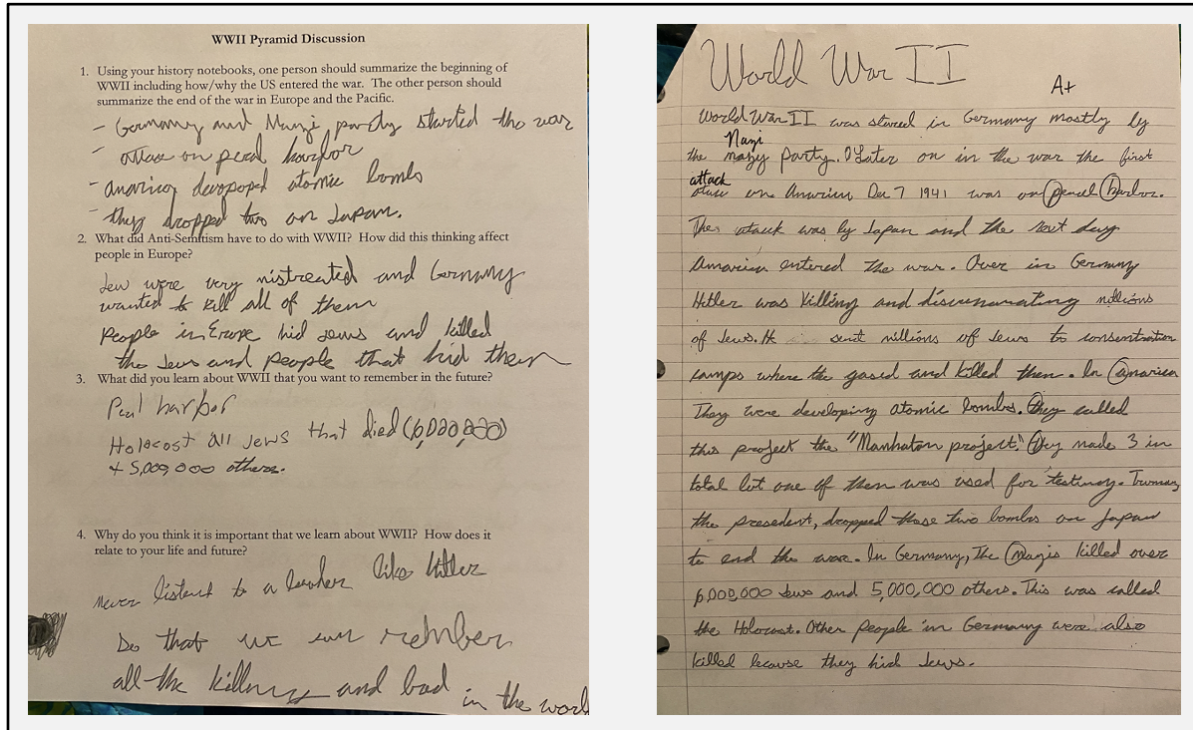 WWII Pyramid Discussion
1. Using your history notebooks, one person should summarize the beginning of
WWII including how/why the US entered the war. The other person should
summarize the end of the war in Europe and the Pacific.
- Germany and Nanzi party started the war
- on peral harbor
- atomic bombs
- they dropped two on Japan.
2. What did Anti-Semitism have to do with WWII? How did this thinking affect
people in Europe?
Jew were very mistreated and Germany
wanted to kill all of them
People in Erope hid Jews and killed
the Jews and people that hid them
3. What did you learn about WWII that you want to remember in the future?
Perl harbor
Holocost all Jews that died (6,000,000)
+ 5,000,000 others.
4. Why do you think it is important that we learn about WWII? How does it
relate to your life and future?
Never to a leader like Hitler
So that we can rember
all the killings and bad in the world
World War II
A+
World War II was in Germany mostly by
Nazi
the party. Later on in the war the first
attack
on Dec 7 1941 was on harbor.
The attack was by Japan and the day
entered the war. Over in Germany
Hitler was killing and millions
of Jews. He sent millions of Jews to consentration
camps where the gased and killed them. In
They were developing atomic bombs. They called
this project the "Manhaton project." They made 3 in
total but one of them was used for Truman,
the presedent, dropped these two bombs on Japan
to end the war. In Germany, The nazis killed over
6,000,000 Jews and 5,000,000 others. This was called
the Holocost. Other people in Germany were also
killed because they hid Jews.